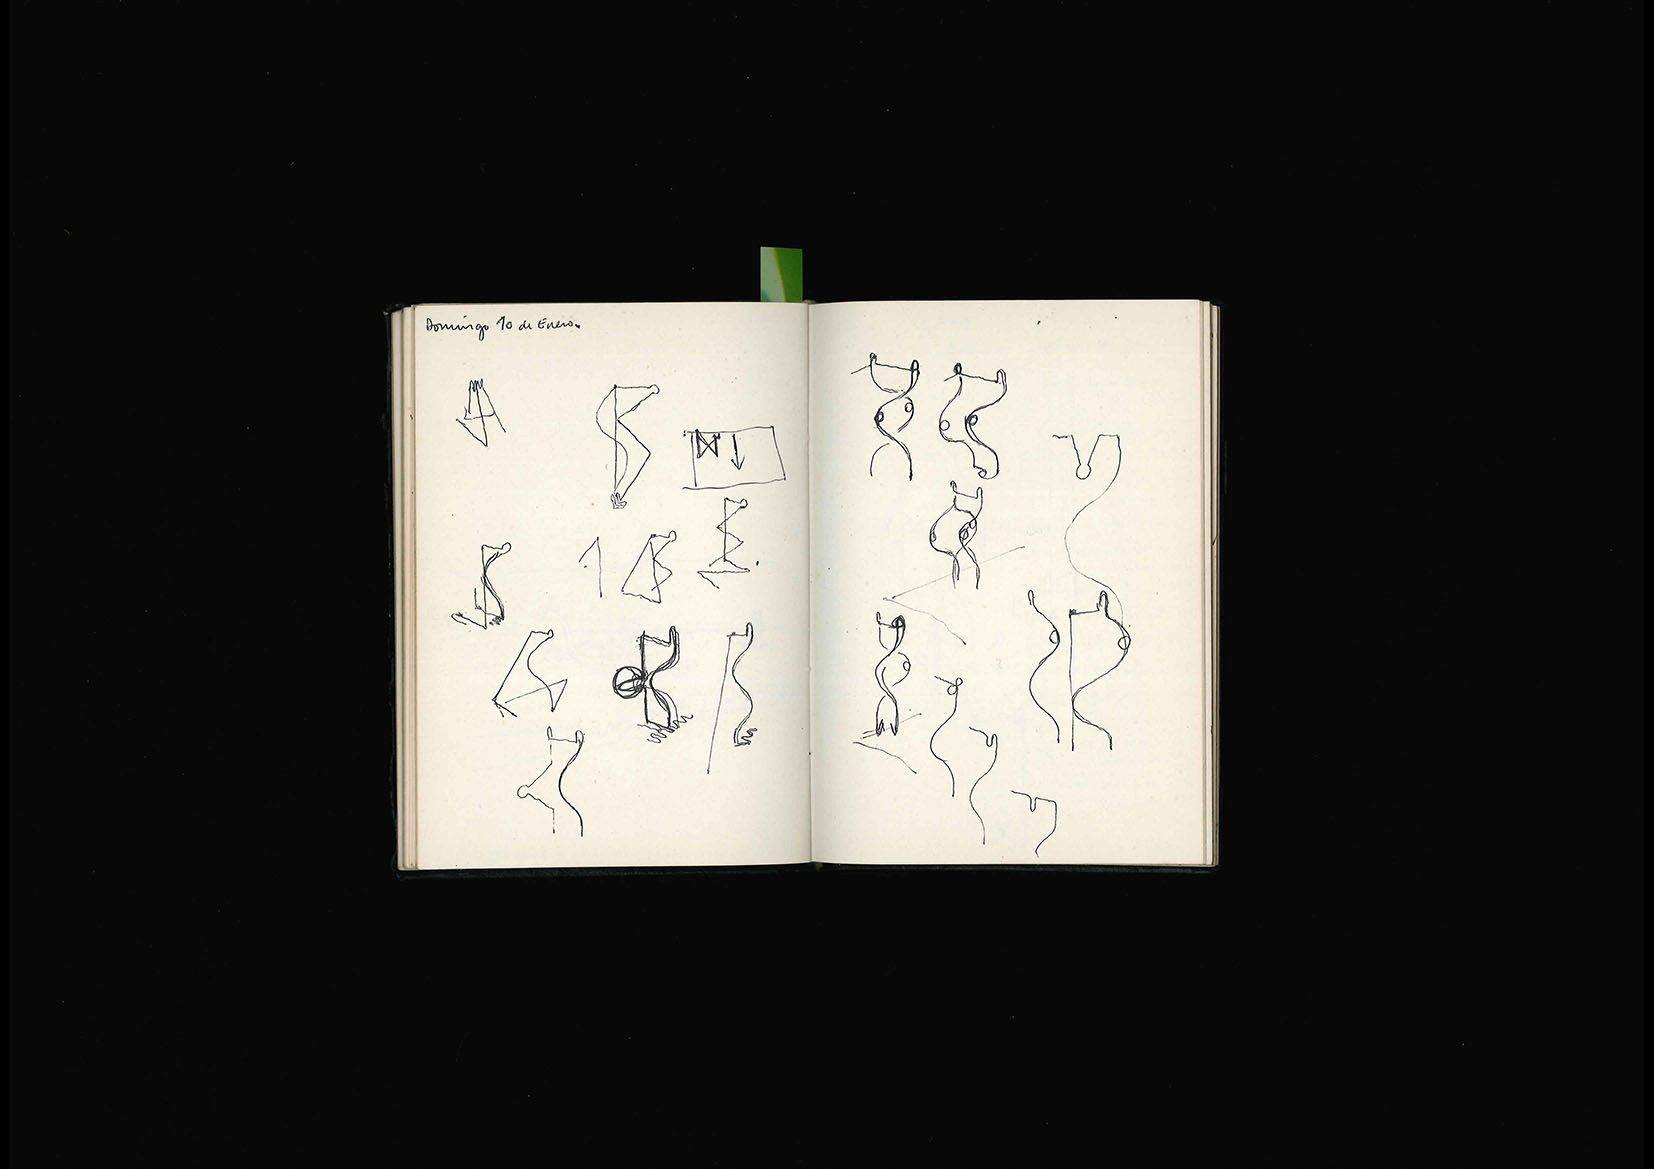 Domingo 10 de Enero.